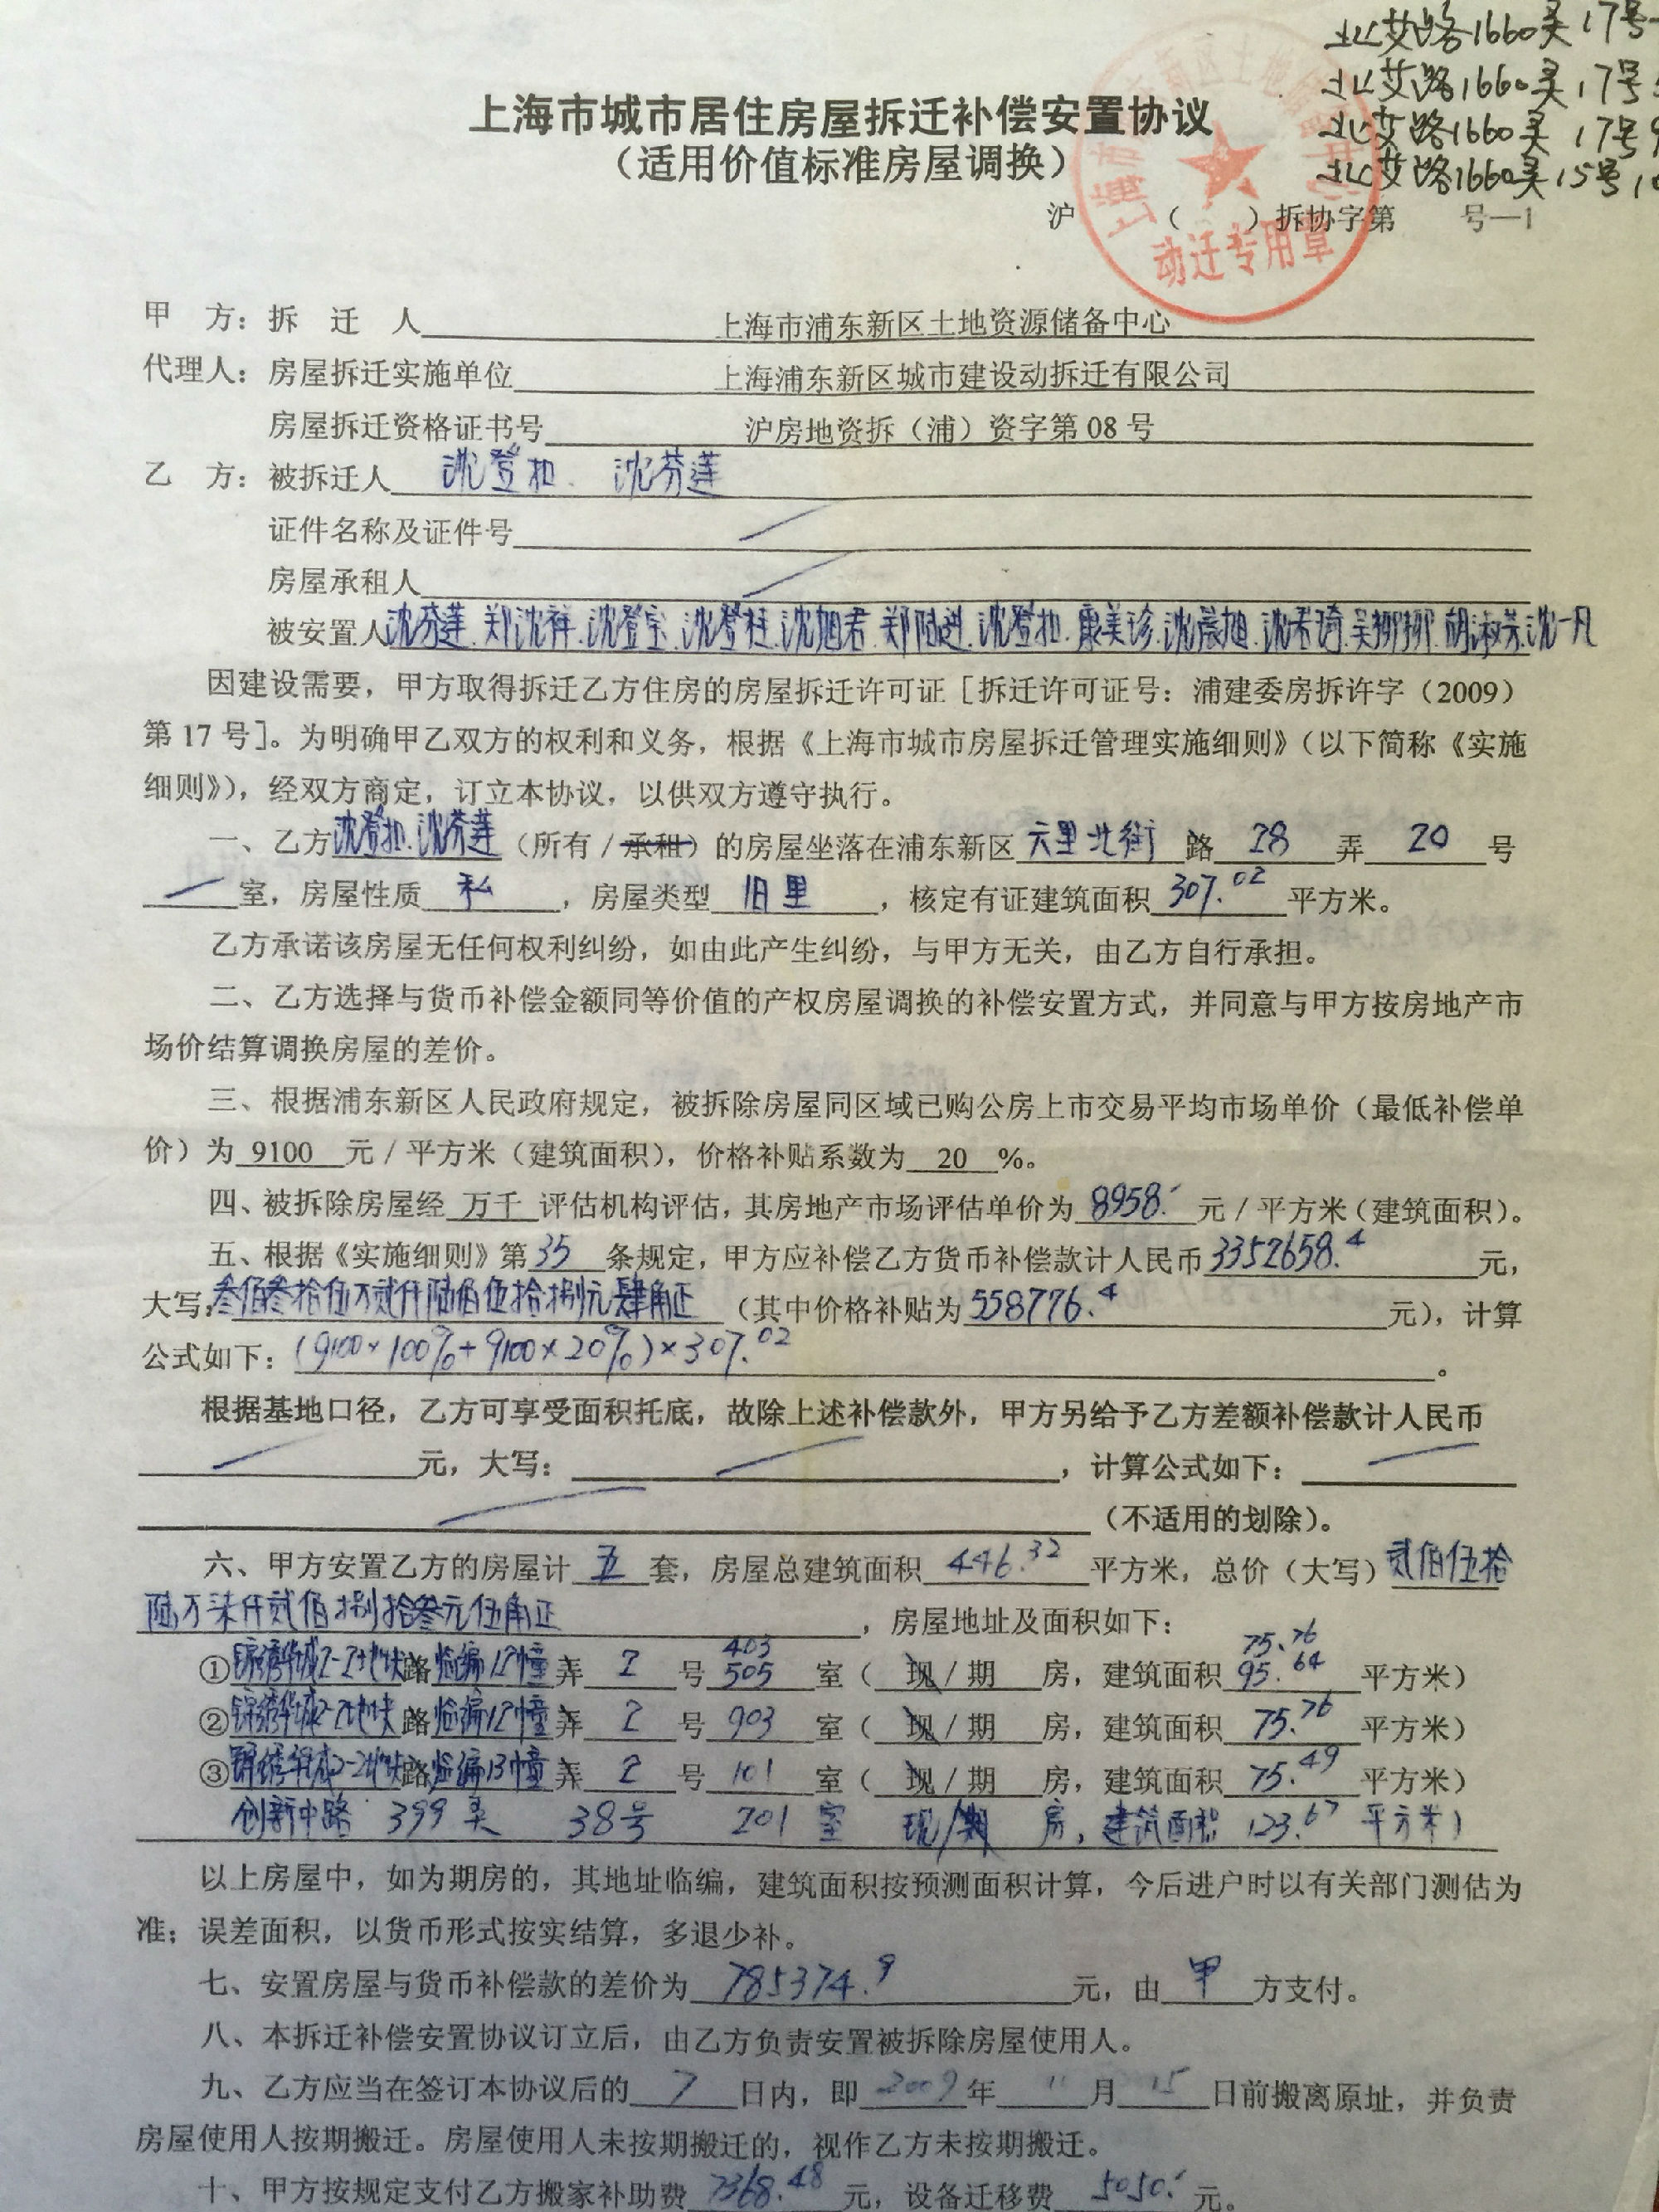 北艾路1660弄17号
北艾路1660弄17号
北艾路1660弄17号9
北艾路1660弄15号10
上海市城市居住房屋拆迁补偿安置协议
（适用价值标准房屋调换）
沪 （ ）拆协字第 号—1
动迁专用章
甲 方：拆 迁 人 上海市浦东新区土地资源储备中心
代理人：房屋拆迁实施单位 上海浦东新区城市建设动拆迁有限公司
房屋拆迁资格证书号 沪房地资拆（浦）资字第 08 号
乙 方：被拆迁人 沈登 沈芬莲
证件名称及证件号
房屋承租人
被安置人 沈芬莲.郑沈祥.沈登宝.沈登柱.沈旭君.郑陆进.沈登.康美珍.沈晨旭.沈希琦.吴柳柳.胡淑芳.沈一凡
因建设需要，甲方取得拆迁乙方住房的房屋拆迁许可证［拆迁许可证号：浦建委房拆许字（2009）
第 17 号］。为明确甲乙双方的权利和义务，根据《上海市城市房屋拆迁管理实施细则》（以下简称《实施
细则》），经双方商定，订立本协议，以供双方遵守执行。
一、乙方沈登.沈芬莲（所有 / 承租）的房屋坐落在浦东新区 六里北街 路 28 弄 20 号
室，房屋性质 私 ，房屋类型 旧里 ，核定有证建筑面积 307.02 平方米。
乙方承诺该房屋无任何权利纠纷，如由此产生纠纷，与甲方无关，由乙方自行承担。
二、乙方选择与货币补偿金额同等价值的产权房屋调换的补偿安置方式，并同意与甲方按房地产市
场价结算调换房屋的差价。
三、根据浦东新区人民政府规定，被拆除房屋同区域已购公房上市交易平均市场单价（最低补偿单
价）为 9100 元 / 平方米（建筑面积），价格补贴系数为 20 %。
四、被拆除房屋经 万千 评估机构评估，其房地产市场评估单价为 8958. 元 / 平方米（建筑面积）。
五、根据《实施细则》第 35 条规定，甲方应补偿乙方货币补偿款计人民币 3352658.4 元，
大写：叁佰叁拾伍万贰仟陆佰伍拾捌元肆角正 （其中价格补贴为 558776.4 元），计算
公式如下：(9100×100%+9100×20%)×307.02 。
根据基地口径，乙方可享受面积托底，故除上述补偿款外，甲方另给予乙方差额补偿款计人民币
元，大写： ，计算公式如下：
（不适用的划除）。
六、甲方安置乙方的房屋计 五 套，房屋总建筑面积 446.32 平方米，总价（大写）贰佰伍拾
陆万柒仟贰佰捌拾叁元伍角正 ，房屋地址及面积如下：
403 75.76
①锦绣华城2-2地块路临编12幢弄 2 号 505 室（ 现 / 期 房，建筑面积 95.64 平方米）
②锦绣华城2-2地块路临编12幢弄 2 号 903 室（ 现 / 期 房，建筑面积 75.76 平方米）
③锦绣华城2-2地块路临编13幢弄 2 号 101 室（ 现 / 期 房，建筑面积 75.49 平方米）
创新中路 399弄 38号 201 室 现/期 房，建筑面积 123.67 平方米）
以上房屋中，如为期房的，其地址临编，建筑面积按预测面积计算，今后进户时以有关部门测估为
准；误差面积，以货币形式按实结算，多退少补。
七、安置房屋与货币补偿款的差价为 785374.9 元，由 甲 方支付。
八、本拆迁补偿安置协议订立后，由乙方负责安置被拆除房屋使用人。
九、乙方应当在签订本协议后的 7 日内，即 2009 年 11 月 15 日前搬离原址，并负责
房屋使用人按期搬迁。房屋使用人未按期搬迁的，视作乙方未按期搬迁。
十、甲方按规定支付乙方搬家补助费 7368.48 元，设备迁移费 5050. 元。